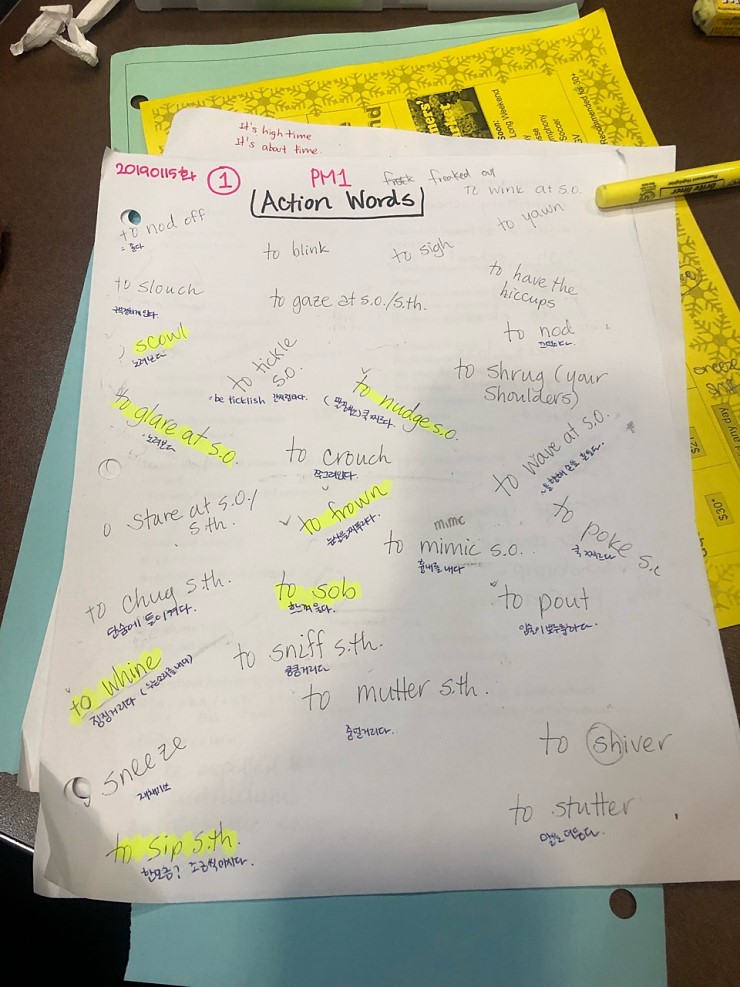 It's high time
It's about time.
20190115화
1
PM1
freaked out
to wink at s.o.
Action Words
to nod off
= 졸다
to blink
to sigh
to yawn
to slouch
to gaze at s.o./s.th.
to have the
hiccups
scowl
노려보다
to tickle
s.o.
be ticklish
to nod
to nudge s.o.
to shrug (your
shoulders)
to glare at s.o.
노려보다
to crouch
쪼그려앉다.
to wave at s.o.
stare at s.o./
s.th.
to frown
눈살을찌푸리다.
mimc
to mimic s.o.
흉내를 내다
to poke s.o
쿡 찌르다
to chug s.th.
단숨에 들이켜다.
to sob
흐느껴 울다.
to pout
to whine
징징거리다 (우는소리를 내다)
to sniff s.th.
킁킁거리다.
to mutter s.th.
중얼거리다.
to shiver
sneeze
재채기
to stutter
말을 더듬다.
to sip s.th.
한모금? 조금씩마시다.
Long Weekend
Soon:
Recommended
any day
$30